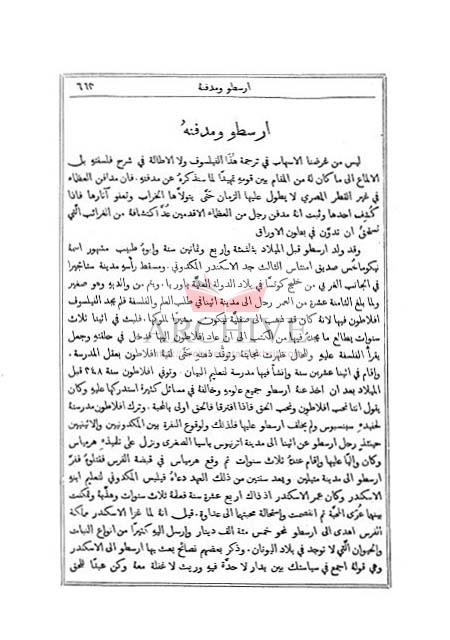 ارسطو ومدفنهُ
٦٦٣
ارسطو ومدفنهُ
ليس من غرضنا الاسهاب في ترجمة هذا الفيلسوف ولا الاطالة في شرح فلسفتهِ بل
الالماع الى ما كان لهُ من المقام بين قومهِ تمهيدًا لما سنذكرهُ عن مدفنهِ. فان مدافن العظماء
في غير القطر المصري لا يطول عليها الزمان حتَّى يتولاَّها الخراب وتعفو آثارها فاذا
كُشِف احدها وثبت انهُ مدفن رجل من العظماء الاقدمين عدَّ اكتشافهُ من الغرائب التي
تستحقُّ ان تدوَّن في بطون الاوراق
وقد ولد ارسطو قبل الميلاد بثلثمئة واربع وثمانين سنة وابوهُ طبيب مشهور اسمهُ
نيكوماخس صديق امنتاس الثالث جد الاسكندر المكدوني. ومسقط رأسهِ مدينة ستاجيرا
في الجانب الغربي من خليج كونتسا في بلاد الدولة العليَّة باوربا. ويتم من والديهِ وهو صغير
ولما بلغ الثامنة عشرة من العمر رحل الى مدينة اثينا في طلب العلم والفلسفة فلم يجد الفيلسوف
افلاطون فيها لانهُ كان قد ذهب الى صقلية ليكون مشيرًا لملوكها. فلبث في اثينا ثلاث
سنوات يطالع ما يجدهُ فيها من الكتب الى ان عاد افلاطون اليها فدخل في حلقتهِ وجعل
يقرأ الفلسفة عليهِ وللحال ظهرت نجابتهُ وتوقُّد ذهنهِ حتَّى لقبهُ افلاطون بعقل المدرسة.
واقام في اثينا عشرين سنة وانشأ فيها مدرسة لتعليم البيان. وتوفي افلاطون سنة ٣٤٨ قبل
الميلاد بعد ان اخذ عنهُ ارسطو جميع علومهِ وخالفهُ في مسائل كثيرة استدركها عليهِ وكان
يقول اننا نحب افلاطون ونحب الحق فاذا افترقا فالحق اولى بالمحبة. وترك افلاطون مدرستهُ
لحفيدهِ سبنسبوس ولم يخالف ارسطو عليها فلذلك ولوقوع النفرة بين المكدونيين والاثينيين
حينئذٍ رحل ارسطو عن اثينا الى مدينة اترنيوس باسيا الصغرى ونزل على تلميذهِ هرمياس
وكان واليًا عليها واقام عندهُ ثلاث سنوات ثم وقع هرمياس في قبضة الفرس فقتلوهُ ففرَّ
ارسطو الى مدينة متيلين. وبعد سنتين من ذلك العهد دعاهُ فيلبس المكدوني لتعليم ابنهِ
الاسكندر وكان عمر الاسكندر اذ ذاك اربع عشرة سنة فعلمهُ ثلاث سنوات وهذَّبهُ وتمكنت
بينهما عُرَى المحبَّة ثم انفصمت واستحالت محبتهما الى عداوة. قيل انهُ لما غزا الاسكندر مملكة
الفرس اهدى الى ارسطو نحو خمس مئة الف دينار وارسل اليهِ كثيرًا من انواع النبات
والحيوان التي لا توجد في بلاد اليونان. وذكر بعضهم نصائح بعث بها ارسطو الى الاسكندر
وهي قولهُ اجمع في سياستك بين بدار لا حدَّة فيهِ وريث لا غفلة معهُ وكن عبدًا للحق
ARCHIVE